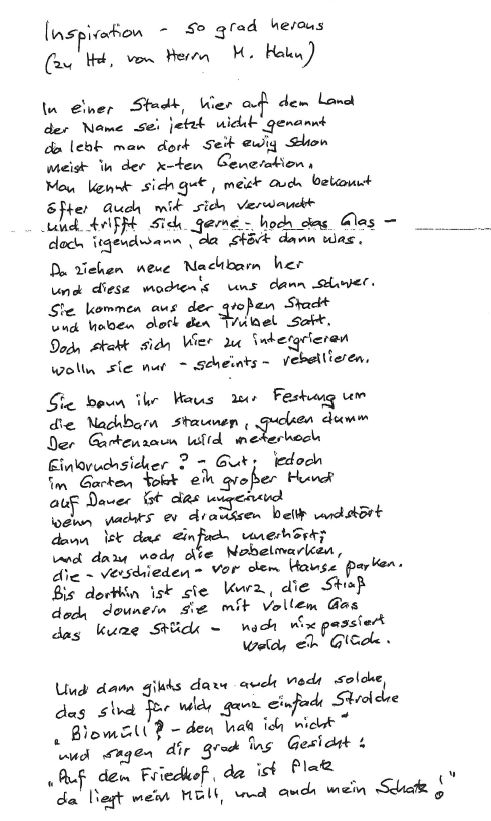 Inspiration - so grad heraus
(zu Hd. von Herrn M. Hahn)
In einer Stadt, hier auf dem Land
der Name sei jetzt nicht genannt
da lebt man dort seit ewig schon
meist in der x-ten Generation.
Man kennt sich gut, meist auch bekannt
öfter auch mit sich verwandt
und trifft sich gerne - hoch das Glas -
doch irgendwann, da stört dann was.
Da ziehen neue Nachbarn her
und diese machen's uns dann schwer.
Sie kommen aus der großen Stadt
und haben dort den Trubel satt.
Doch statt sich hier zu intergrieren
wolln sie nur - scheints - rebellieren.
Sie baun ihr Haus zur Festung um
die Nachbarn staunen, gucken dumm
Der Gartenzaun wird meterhoch
Einbruchsicher? - Gut; jedoch
im Garten tobt ein großer Hund
auf Dauer ist das ungesund
wenn nachts er draussen bellt und stört
dann ist das einfach unerhört;
und dazu noch die Nobelmarken,
die - verschieden - vor dem Hause parken.
Bis dorthin ist sie kurz, die Straß
doch donnern sie mit vollem Gas
das kurze Stück - noch nix passiert
welch ein Glück.
Und dann gibts dazu auch noch solche,
das sind für mich ganz einfach Strolche
"Biomüll? - den hab ich nicht"
und sagen dir grad ins Gesicht:
"Auf dem Friedhof, da ist Platz
da liegt mein Müll, und auch mein Schatz!"